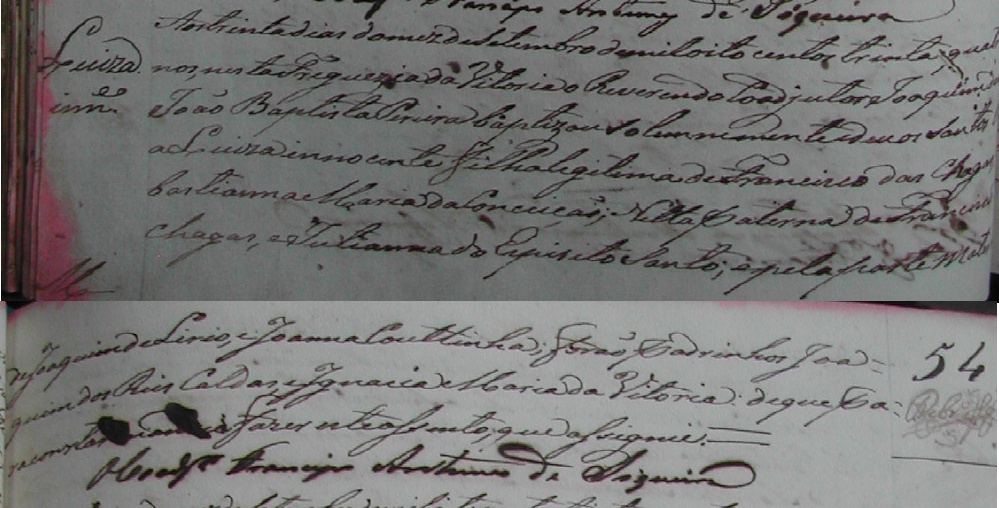 Francisco Antonio de Siqueira
Aos trinta dias do mez de Setembro de mil oito centos, trinta, e quat
Luiza nos nesta Freguezia da Vitoria o Reverendo Coadjutor Joaquim
inn.e João Baptista Pereira baptizou solemnemente e deu os Santos
a Luiza innocente Filha legitima de Francisco das Chagas
bastianna Maria da Conceição; Netta paterna de Francisco
Chagas, e Julianna do Espirito Santo; e pela parte Mater
de Joaquim de Lirio, e Joanna Couttinha; forão Padrinhos Joa=
quim dos Reis Caldas, e Ignacia Maria da Vitoria: de que Pa=
ra constar fazer este assento, que assignei.
Francisco Antonio de Siqueira
54